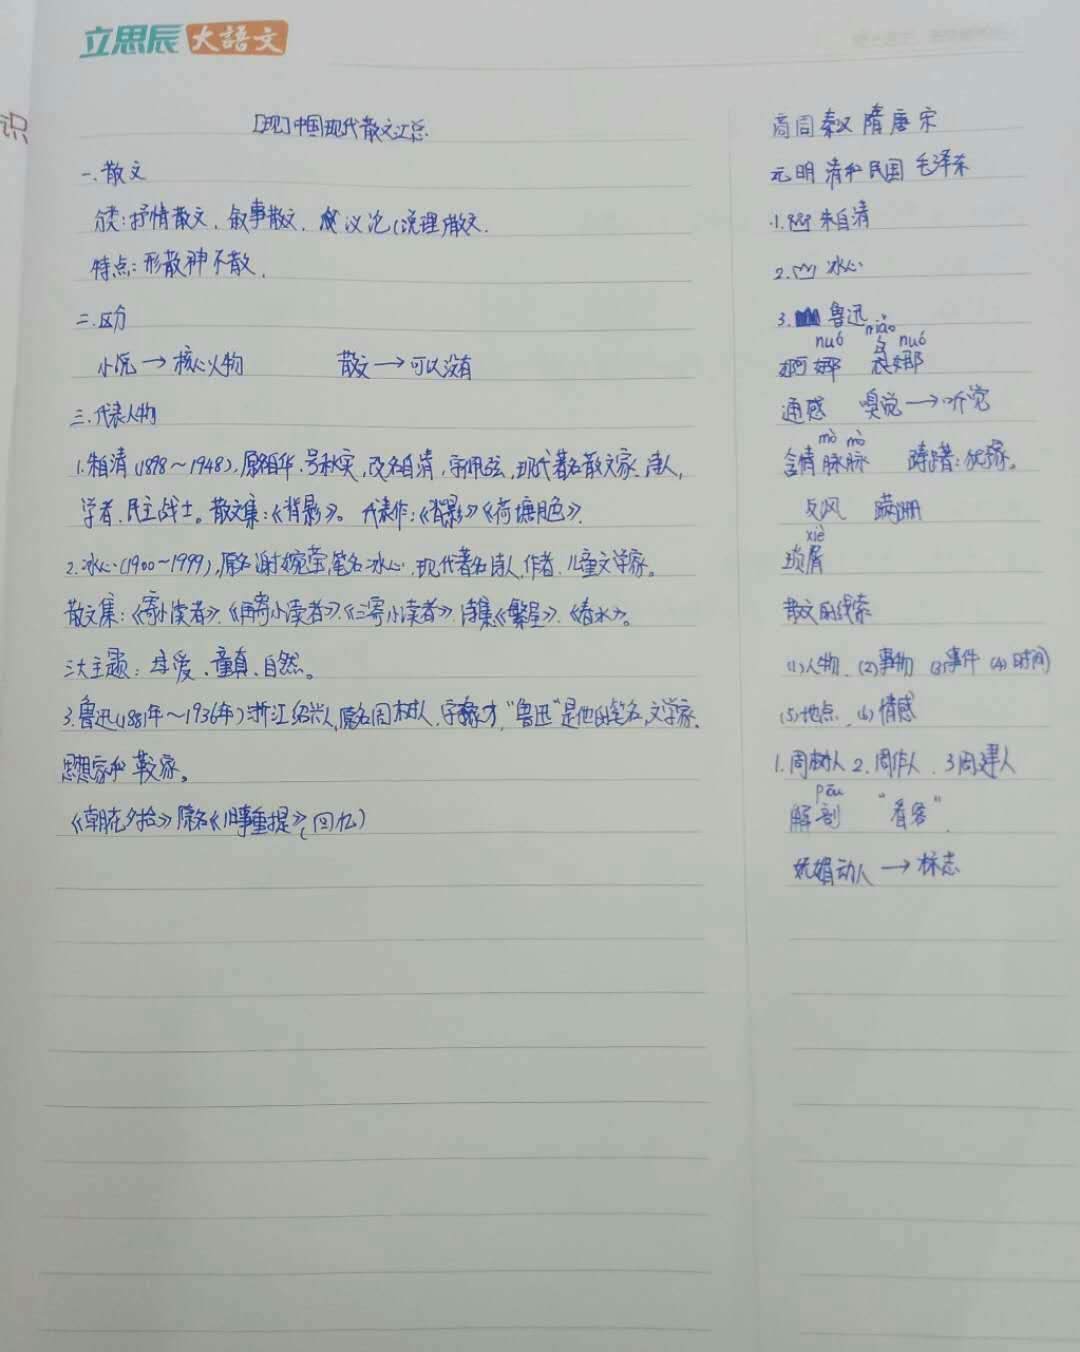 立思辰大語文
识
[现]中国现代散文汇总
一.散文
分类:抒情散文、叙事散文、议论(说理)散文.
特点:形散神不散.
二.区分
小说→核心人物 散文→可以没有
三.代表人物
1.朱自清(1898~1948),原名自华,号秋实,改名自清,字佩弦,现代著名散文家、诗人,
学者、民主战士。散文集:《背影》。代表作:《背影》《荷塘月色》.
2.冰心(1900~1999),原名谢婉莹,笔名冰心,现代著名诗人,作者、儿童文学家。
散文集:《寄小读者》.《再寄小读者》.《三寄小读者》.诗集《繁星》.《春水》。
三大主题:母爱、童真、自然。
3.鲁迅(1881年~1936年)浙江绍兴人,原名周树人,字豫才,"鲁迅"是他的笔名,文学家、
思想家和革命家。
《朝花夕拾》原名《旧事重提》(回忆)
商周秦汉隋唐宋
元明清和民国毛泽东
1. 朱自清
2. 冰心
3. 鲁迅
nuó niǎo nuó
婀娜 袅娜
通感 嗅觉→听觉
mò mò
含情脉脉 踌躇:犹豫。
蹒跚
xiè
琐屑
散文的线索
(1)人物、(2)事物 (3)事件 (4)时间
(5)地点、(6)情感
1.周树人 2.周作人、3周建人
pōu
解剖 "看客"
动人→标志